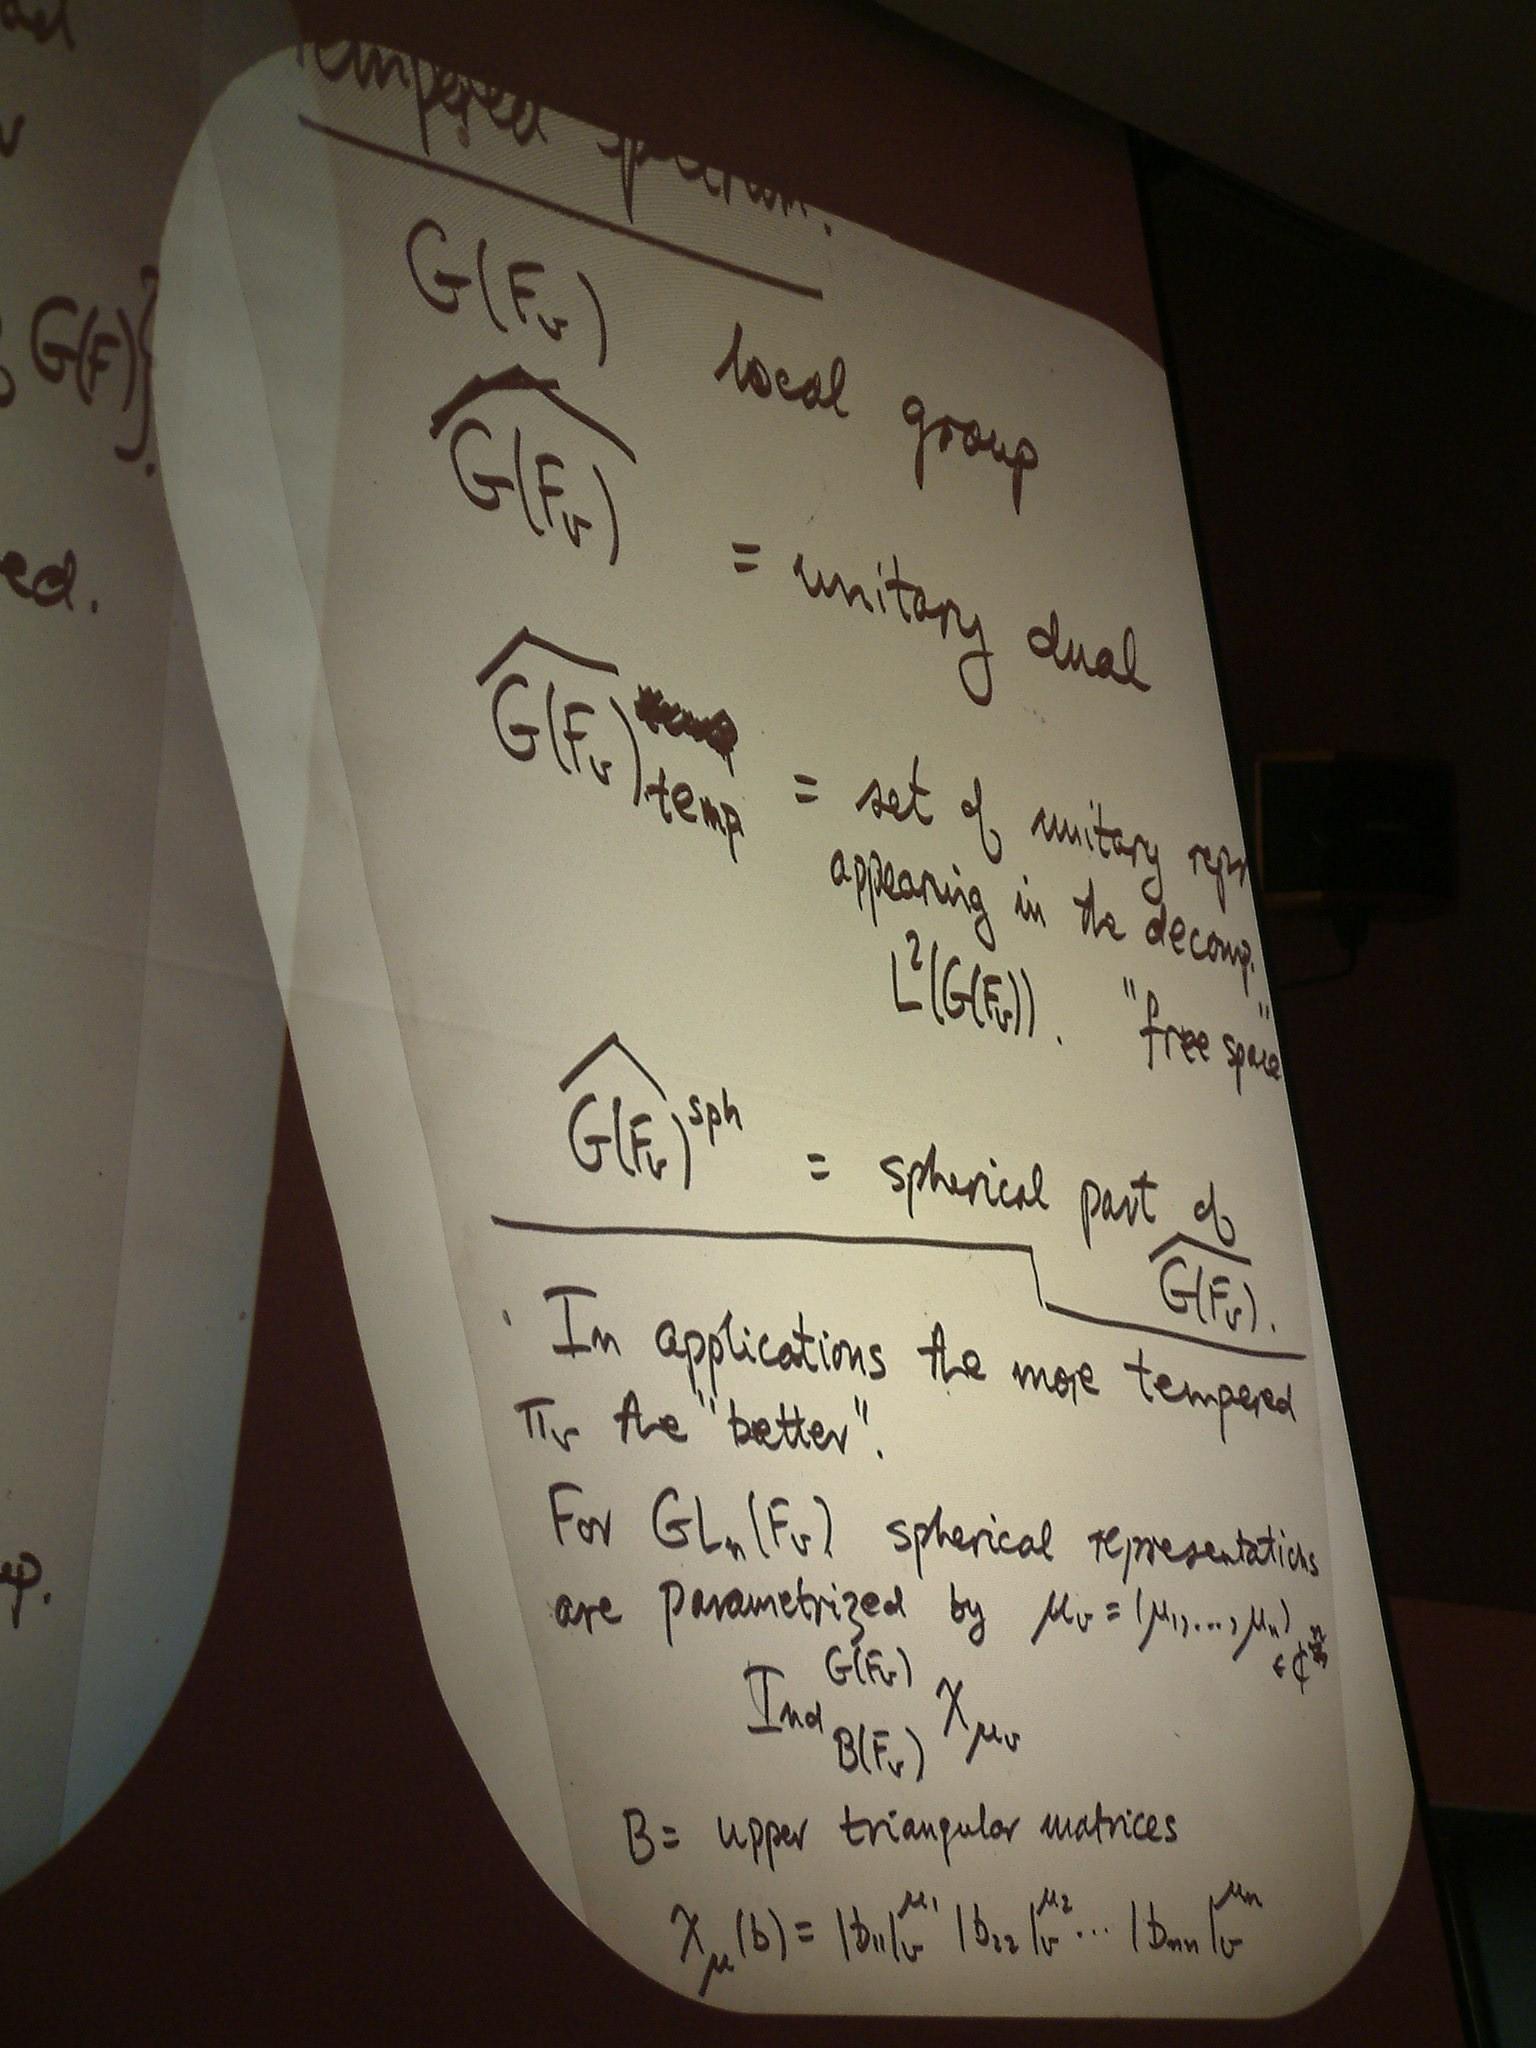 tempered spectrum.
G(F_v) local group
\widehat{G(F_v)} = unitary dual
\widehat{G(F_v)}_{temp} = set of unitary repr
appearing in the decomp.
L^2(G(F_v)). "free space"
\widehat{G(F_v)}^{sph} = spherical part of
\widehat{G(F_v)}.
· In applications the more tempered
π_v the "better".
For GL_n(F_v) spherical representations
are parametrized by μ_v = (μ_1, ..., μ_n) ∈ ℂ^n
Ind_{B(F_v)}^{G(F_v)} χ_{μ_v}
B = upper triangular matrices
χ_μ(b) = |b_{11}|_v^{μ_1} |b_{22}|_v^{μ_2} ... |b_{nn}|_v^{μ_n}
G(F)}.
ed.